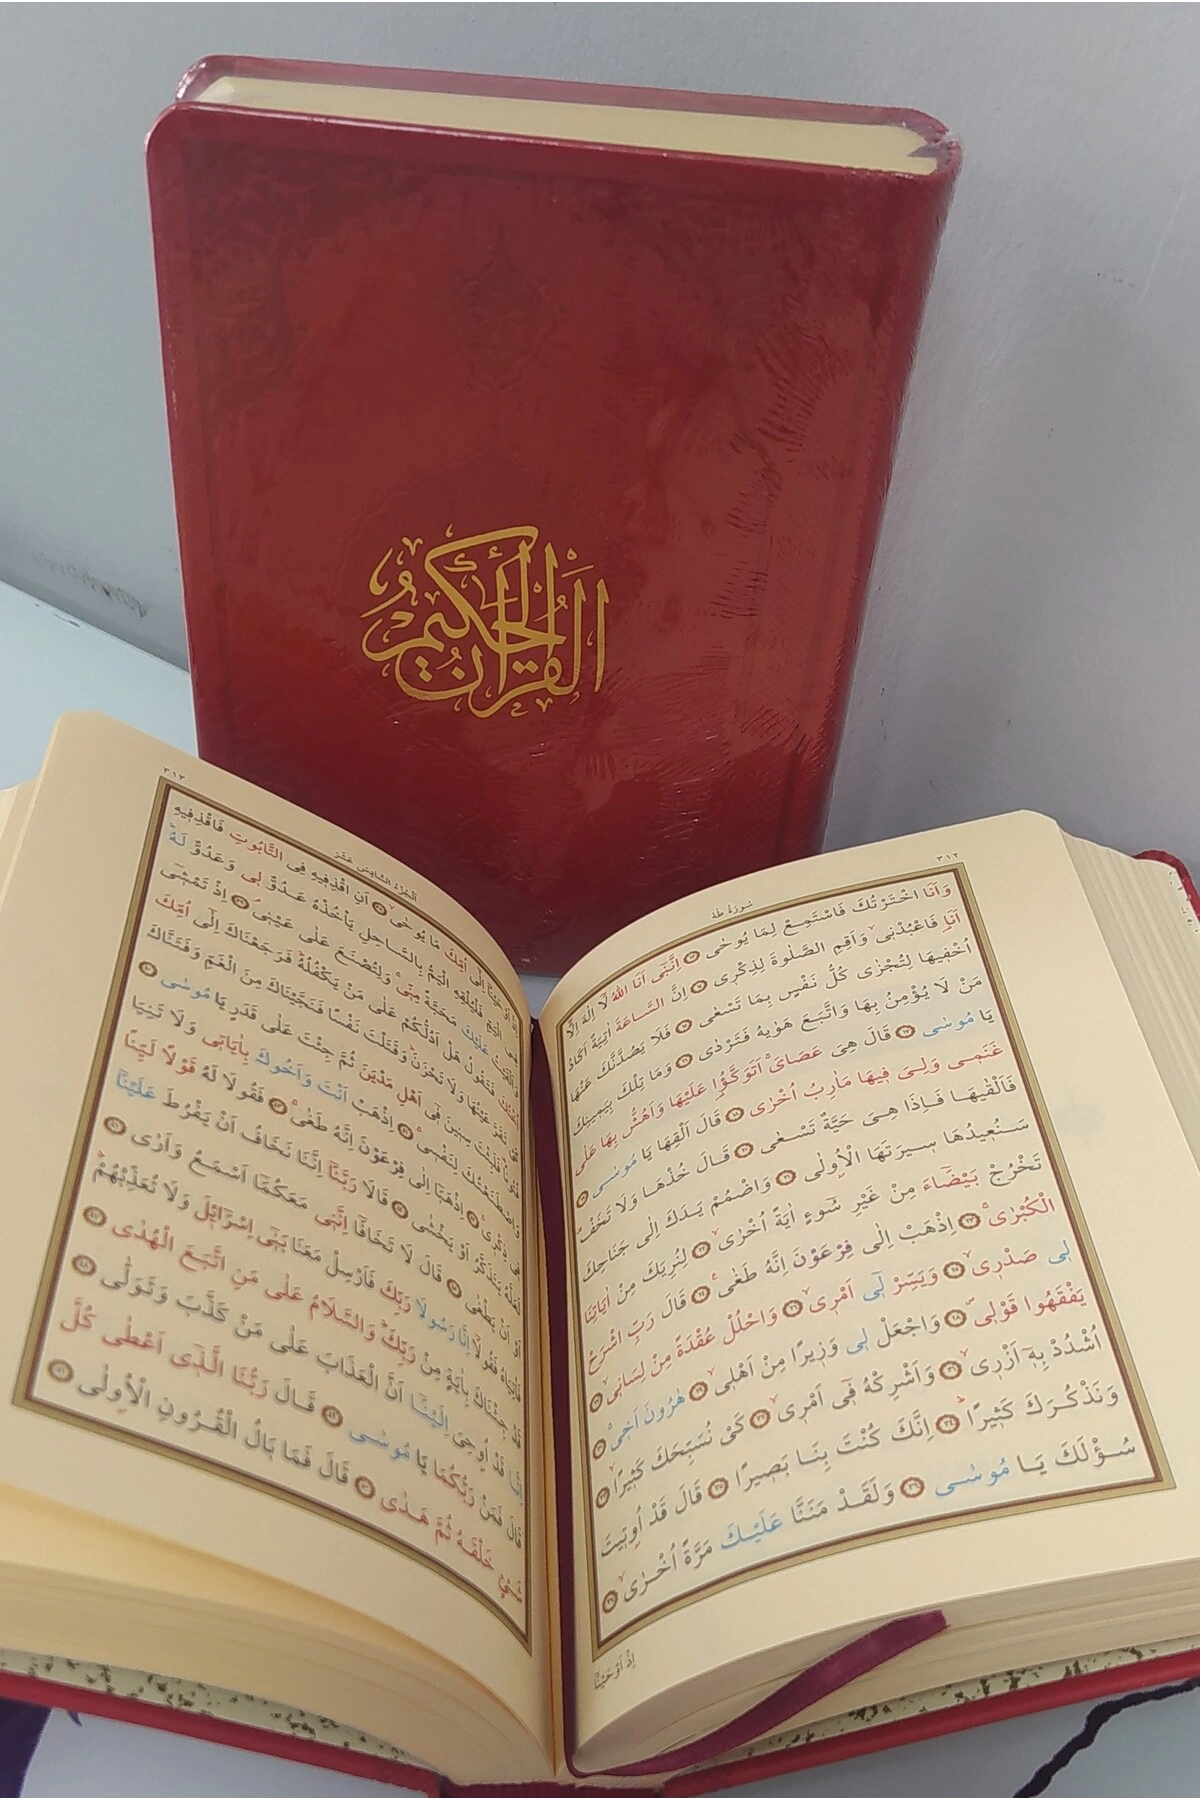 القرآن الحكيم
٣١٢
سُورَةُ طٰهٰ
وَاَنَا اخْتَرْتُكَ فَاسْتَمِعْ لِمَا يُوحٰى ۝ اِنَّنٖٓى اَنَا اللّٰهُ لَٓا اِلٰهَ اِلَّٓا
اَنَا۬ فَاعْبُدْنٖىۙ وَاَقِمِ الصَّلٰوةَ لِذِكْرٖى ۝ اِنَّ السَّاعَةَ اٰتِيَةٌ اَكَادُ
اُخْفٖيهَا لِتُجْزٰى كُلُّ نَفْسٍ بِمَا تَسْعٰى ۝ فَلَا يَصُدَّنَّكَ عَنْهَا
مَنْ لَا يُؤْمِنُ بِهَا وَاتَّبَعَ هَوٰيهُ فَتَرْدٰى ۝ وَمَا تِلْكَ بِيَمٖينِكَ
يَا مُوسٰى ۝ قَالَ هِىَ عَصَاىَۚ اَتَوَكَّؤُ۬ا عَلَيْهَا وَاَهُشُّ بِهَا عَلٰى
غَنَمٖى وَلِىَ فٖيهَا مَاٰرِبُ اُخْرٰى ۝ قَالَ اَلْقِهَا يَا مُوسٰى ۝
فَاَلْقٰيهَا فَاِذَا هِىَ حَيَّةٌ تَسْعٰى ۝ قَالَ خُذْهَا وَلَا تَخَفْ۠
سَنُعٖيدُهَا سٖيرَتَهَا الْاُو۫لٰى ۝ وَاضْمُمْ يَدَكَ اِلٰى جَنَاحِكَ
تَخْرُجْ بَيْضَٓاءَ مِنْ غَيْرِ سُٓوءٍ اٰيَةً اُخْرٰىۙ ۝ لِنُرِيَكَ مِنْ اٰيَاتِنَا
الْكُبْرٰىۚ ۝ اِذْهَبْ اِلٰى فِرْعَوْنَ اِنَّهُ طَغٰى۟ ۝ قَالَ رَبِّ اشْرَحْ
لٖى صَدْرٖىۙ ۝ وَيَسِّرْ لٖٓى اَمْرٖىۙ ۝ وَاحْلُلْ عُقْدَةً مِنْ لِسَانٖىۙ ۝
يَفْقَهُوا قَوْلٖىۖ ۝ وَاجْعَلْ لٖى وَزٖيرًا مِنْ اَهْلٖىۙ ۝ هٰرُونَ اَخٖىۚ ۝
اُشْدُدْ بِهٖٓ اَزْرٖىۙ ۝ وَاَشْرِكْهُ فٖٓى اَمْرٖىۙ ۝ كَىْ نُسَبِّحَكَ كَثٖيرًاۙ ۝
وَنَذْكُرَكَ كَثٖيرًاؕ ۝ اِنَّكَ كُنْتَ بِنَا بَصٖيرًا ۝ قَالَ قَدْ اُو۫تٖيتَ
سُؤْلَكَ يَا مُوسٰى ۝ وَلَقَدْ مَنَنَّا عَلَيْكَ مَرَّةً اُخْرٰىۙ ۝
اِذْ اَوْحَيْنَٓا
٣١٣
اَلْجُزْءُ السَّادِسُ عَشَرَ
اِذْ اَوْحَيْنَٓا اِلٰٓى اُمِّكَ مَا يُوحٰىۙ ۝ اَنِ اقْذِفٖيهِ فِى التَّابُوتِ فَاقْذِفٖيهِ
فِى الْيَمِّ فَلْيُلْقِهِ الْيَمُّ بِالسَّاحِلِ يَاْخُذْهُ عَدُوٌّ لٖى وَعَدُوٌّ لَهُؕ
وَاَلْقَيْتُ عَلَيْكَ مَحَبَّةً مِنّٖىۚ وَلِتُصْنَعَ عَلٰى عَيْنٖىۘ ۝ اِذْ تَمْشٖٓى
اُخْتُكَ فَتَقُولُ هَلْ اَدُلُّكُمْ عَلٰى مَنْ يَكْفُلُهُؕ فَرَجَعْنَاكَ اِلٰٓى اُمِّكَ
كَىْ تَقَرَّ عَيْنُهَا وَلَا تَحْزَنَؕ وَقَتَلْتَ نَفْسًا فَنَجَّيْنَاكَ مِنَ الْغَمِّ وَفَتَنَّاكَ
فُتُونًا۠ فَلَبِثْتَ سِنٖينَ فٖٓى اَهْلِ مَدْيَنَ ثُمَّ جِئْتَ عَلٰى قَدَرٍ يَا مُوسٰى ۝
وَاصْطَنَعْتُكَ لِنَفْسٖىۚ ۝ اِذْهَبْ اَنْتَ وَاَخُوكَ بِاٰيَاتٖى وَلَا تَنِيَا
فٖى ذِكْرٖىۚ ۝ اِذْهَبَٓا اِلٰى فِرْعَوْنَ اِنَّهُ طَغٰىۚ ۝ فَقُولَا لَهُ قَوْلًا لَيِّنًا
لَعَلَّهُ يَتَذَكَّرُ اَوْ يَخْشٰى ۝ قَالَا رَبَّنَٓا اِنَّنَا نَخَافُ اَنْ يَفْرُطَ عَلَيْنَٓا
اَوْ اَنْ يَطْغٰى ۝ قَالَ لَا تَخَافَٓا اِنَّنٖى مَعَكُمَٓا اَسْمَعُ وَاَرٰى ۝
فَاْتِيَاهُ فَقُولَٓا اِنَّا رَسُولَا رَبِّكَ فَاَرْسِلْ مَعَنَا بَنٖٓى اِسْرَٓائٖلَ وَلَا تُعَذِّبْهُمْؕ
قَدْ جِئْنَاكَ بِاٰيَةٍ مِنْ رَبِّكَؕ وَالسَّلَامُ عَلٰى مَنِ اتَّبَعَ الْهُدٰى ۝
اِنَّا قَدْ اُو۫حِىَ اِلَيْنَٓا اَنَّ الْعَذَابَ عَلٰى مَنْ كَذَّبَ وَتَوَلّٰى ۝
قَالَ فَمَنْ رَبُّكُمَا يَا مُوسٰى ۝ قَالَ رَبُّنَا الَّذٖٓى اَعْطٰى كُلَّ
شَىْءٍ خَلْقَهُ ثُمَّ هَدٰى ۝ قَالَ فَمَا بَالُ الْقُرُونِ الْاُو۫لٰى ۝